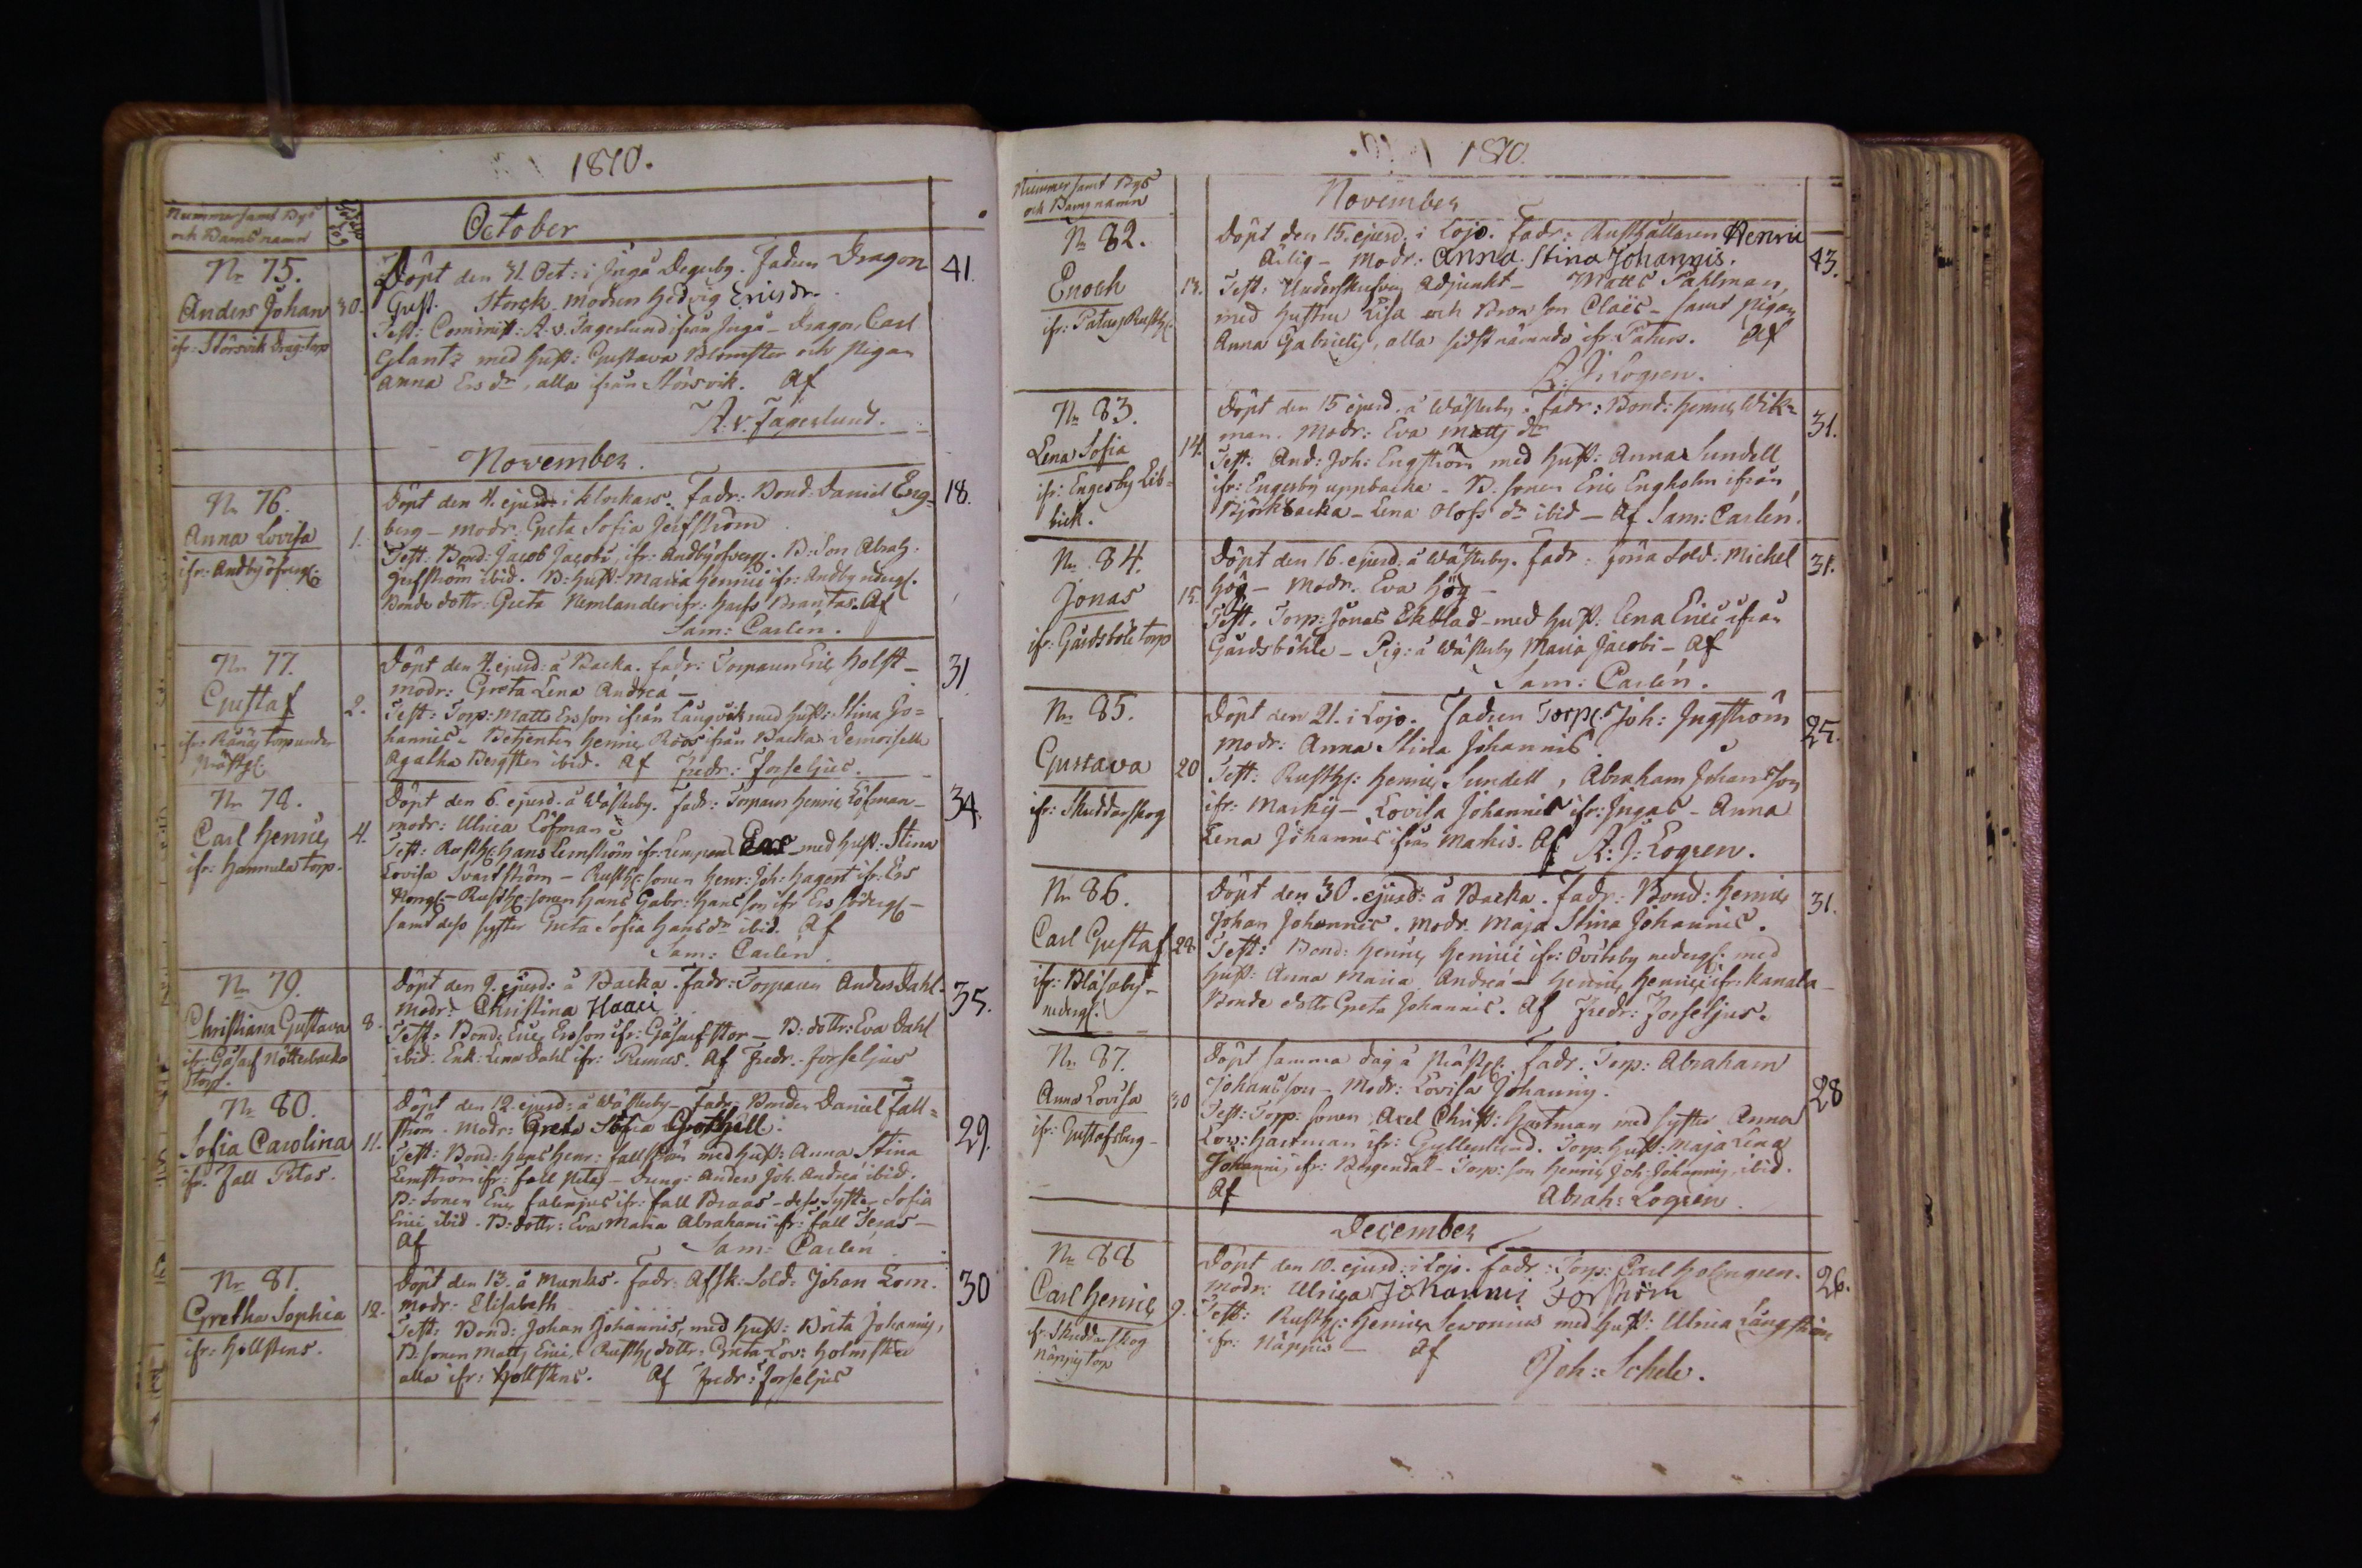 1810.
Nummer samt Bys
och Barns namn
October
Nr 75.
Anders Johan
30.
ifr: Störsvik Drag: torp
Döpt den 31. Oct: i Ingå Degerby. Fadren Dragon
Gust. Storck. Modren Hedvig Ericsdr.
Test: Comminist: A. v. Fagerlund ifrån Ingå - Dragon Carl
Glantz med Hust: Gustava Blomster och Pigan
Anna Ersdr, alla ifrån Störsvik. Af
A. v. Fagerlund.
41.
November.
Nr 76.
Anna Lovisa
1.
ifr: Andby öfvergl:
Döpt den 4. ejusd: i Klockars. Fadr: Bond: Daniel Eng=
berg - Modr: Greta Sofia
Test: Bond: Jacob Jacobi, ifr: Andby öfvergl. B: Son Abrah:
ibid. B: Hust: Maria Henrici ifr: Andby nedergl.
Bonde dottr: Greta Nemlander ifr: Brantas. Af
Sam: Carlén.
18.
Nr 77.
Gustaf
2.
ifr: torp under
Prästgl:
Döpt den 4. ejusd: å Backa. Fadr: Torparen Eric Holst -
Modr: Greta Lena Andreæ -
Test: Torp: Matts Ersson ifrån Långvik med Hust: Stina Jo=
hannis - Betjenten Henric Röös från Backa. Demoiselle
Agatha Bergsten ibid. Af Fredr: Forseljus.
31
Nr 78.
Carl Henric
4.
ifr: Hannula torp.
Döpt den 6. ejusd. å Wästerby. Fadr: Torparen Henric Löfman -
Modr: Ulrica Löfman
Test: Rusth: Hans Lemström ifr: Lempans Ers - med Hust: Stina
Lovisa Svartström - Rusth: sonen Henr: Joh: Hagert ifr: Ers
Norrgl: - Rusth: sonen Hans Gabr: Hansson ifr Ers Södergl -
samt dess syster Greta Sofia Hansdr ibid. Af
Sam: Carlén.
34.
Nr 79.
Christiana Gustava
8.
ifr: Gåsarf Nötterbacka
torp.
Döpt den 9. ejusd: å Backa. Fadr: Torparen Anders Dahl.
Modr: Christina Haari
Test: Bond: Eric Ersson ifr: Gåsarf Stor - B: dottr: Eva Dahl
ibid. Enk: Lena Dahl ifr: Runas. Af Fredr. Forseljus
35.
Nr 80.
Sofia Carolina
11.
ifr: Fall Petas.
Döpt den 12. ejusd: å Wästerby - Fadr: Bonden Daniel Fall=
ström. Modr: Greta Sofia Grothell.
Test: Bond: Hans Henr: Fallström med Hust: Anna Stina
Lemström ifr: Fall Petas - Dreng: Anders Joh. Andreæ ibid.
B: sonen Eric Falenjus ifr: Fall Braas - dess Syster Sofia
Erici ibid. B: dottr: Eva Maria Abrahami ifr: Fall Teras -
Af
Sam: Carlén
29.
Nr 81.
Gretha Sophia
12.
ifr: Hollstens.
Döpt den 13. å Munks. Fadr: Afsk: Sold: Johan Lom.
Modr: Elisabeth
Test: Bond: Johan Johannis, med Hust: Brita Johannis,
B: sonen Matts Erici, Rusth: dottr: Greta Lov: Holmsten
alla ifr: Hollstens. Af Fredr: Forseljus
30
1810.
Nummer samt Bys
och Barns namn
November
Nr 82.
Enoch
13.
ifr: Paturs Rusth:
Döpt den 15. ejusd. i Lojo. Fadr: Rusthållaren Henric
Ärlig - Modr: Anna Stina Johannis.
Test: Underskrifven Adjunkt - Matts Pahlman,
med Hustru Lisa och Bror son Claës - samt Pigan
Anna Gabrielis, alla sidstnämnda ifr: Paturs. Af
A: J: Logren.
43.
Nr 83.
Lena Sofia
14.
ifr: Engesby Lib=
bick.
Döpt den 15 ejusd. å Wästerby. Fadr: Bond: Henric Wik=
man. Modr: Eva Matts dr
Test: And: Joh: Engström med Hust: Anna Sundell
ifr: Engesby uppbacka - B. sonen Eric Engholm ifrån
Björkbacka - Lena Olofs dr ibid - Af Sam: Carlén.
31.
Nr 84.
Jonas
15.
ifr: Gårdsböle torp
Döpt den 16. ejusd. å Wästerby. Fadr: förra Sold: Michel
Hög - Modr. Eva Hög -
Test. Torp: Jonas Ekblad - med Hust: Lena Erici ifrån
Gårdsböhle - Pig: å Wästerby Maria Jacobi - Af
Sam: Carlén.
31.
Nr 85.
Gustava
20
ifr: Skräddarskog
Döpt den 21. i Lojo. Fadren Torp: Joh: Ingström
Modr: Anna Stina Johannis
Test: Rusth: Henric Sundell, Abraham Johansson
ifr: Markis - Lovisa Johannis ifr: Ingas - Anna
Lena Johannis ifrån Markis. Af A: J: Logren.
25.
Nr 86.
Carl Gustaf
28.
ifr: Bläsaby -
nedergl:
Döpt den 30. ejusd: å Backa. Fadr: Bond: Henric
Johan Johannis. Modr. Maja Stina Johannis.
Test: Bond: Henric Henrici ifr: Övitsby nedergl: med
Hust: Anna Maria Andreæ - Henric Henrici ifr: Kanala -
Bonde dottr Greta Johannis. Af Fredr: Forseljus.
31.
Nr 87.
Anna Lovisa
30
ifr: Gustafsberg -
Döpt samma dag å Prästgl: Fadr. Torp: Abraham
Johansson - Modr: Lovisa Johannis.
Test: Torp: sonen Axel Christ: Hartman med syster Anna
Lov: Hartman ifr: Gyllenlund. Torp: Hust: Maja Lena
Johannis ifr: Bergendal - Torp: son Henric Joh: Johannis, ibid.
Af
Abrah: Logren.
28
December
Nr 88
Carl Henric
9.
fr: Skräddarskog
Näppis torp
Döpt den 10. ejusd: i Lojo. Fadr: Torp: Carl Holmgren.
Modr: Ulrica Johannis Forström
Test: Rusth: Henric Seronius med Hust: Ulrica Långström
ifr: Näppis - Af
Joh: Schele.
26.